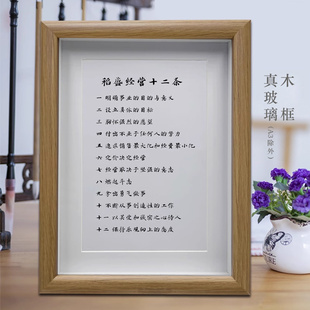 稻盛经营十二条
一 明确事业的目的与意义
二 设立具体的目标
三 胸怀强烈的愿望
四 付出不亚于任何人的努力
五 追求销售最大化和经费最小化
六 定价决定经营
七 经营取决于坚强的意志
八 燃起斗志
九 拿出勇气做事
十 不断从事创造性的工作
十一 以关爱和诚实之心待人
十二 保持乐观向上的态度
木框
真玻璃
(A3除外)